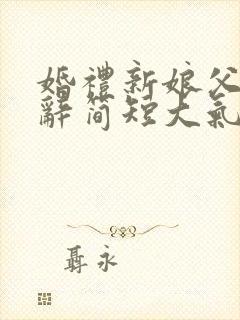 婚禮新娘父
辭简短大氣
聶永